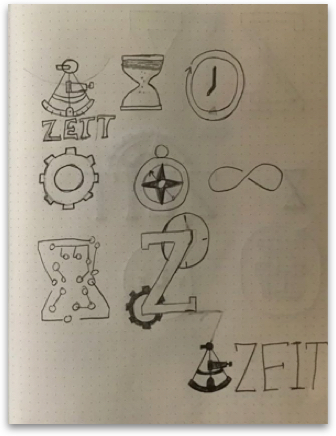 ZEIT
Z
ZEIT